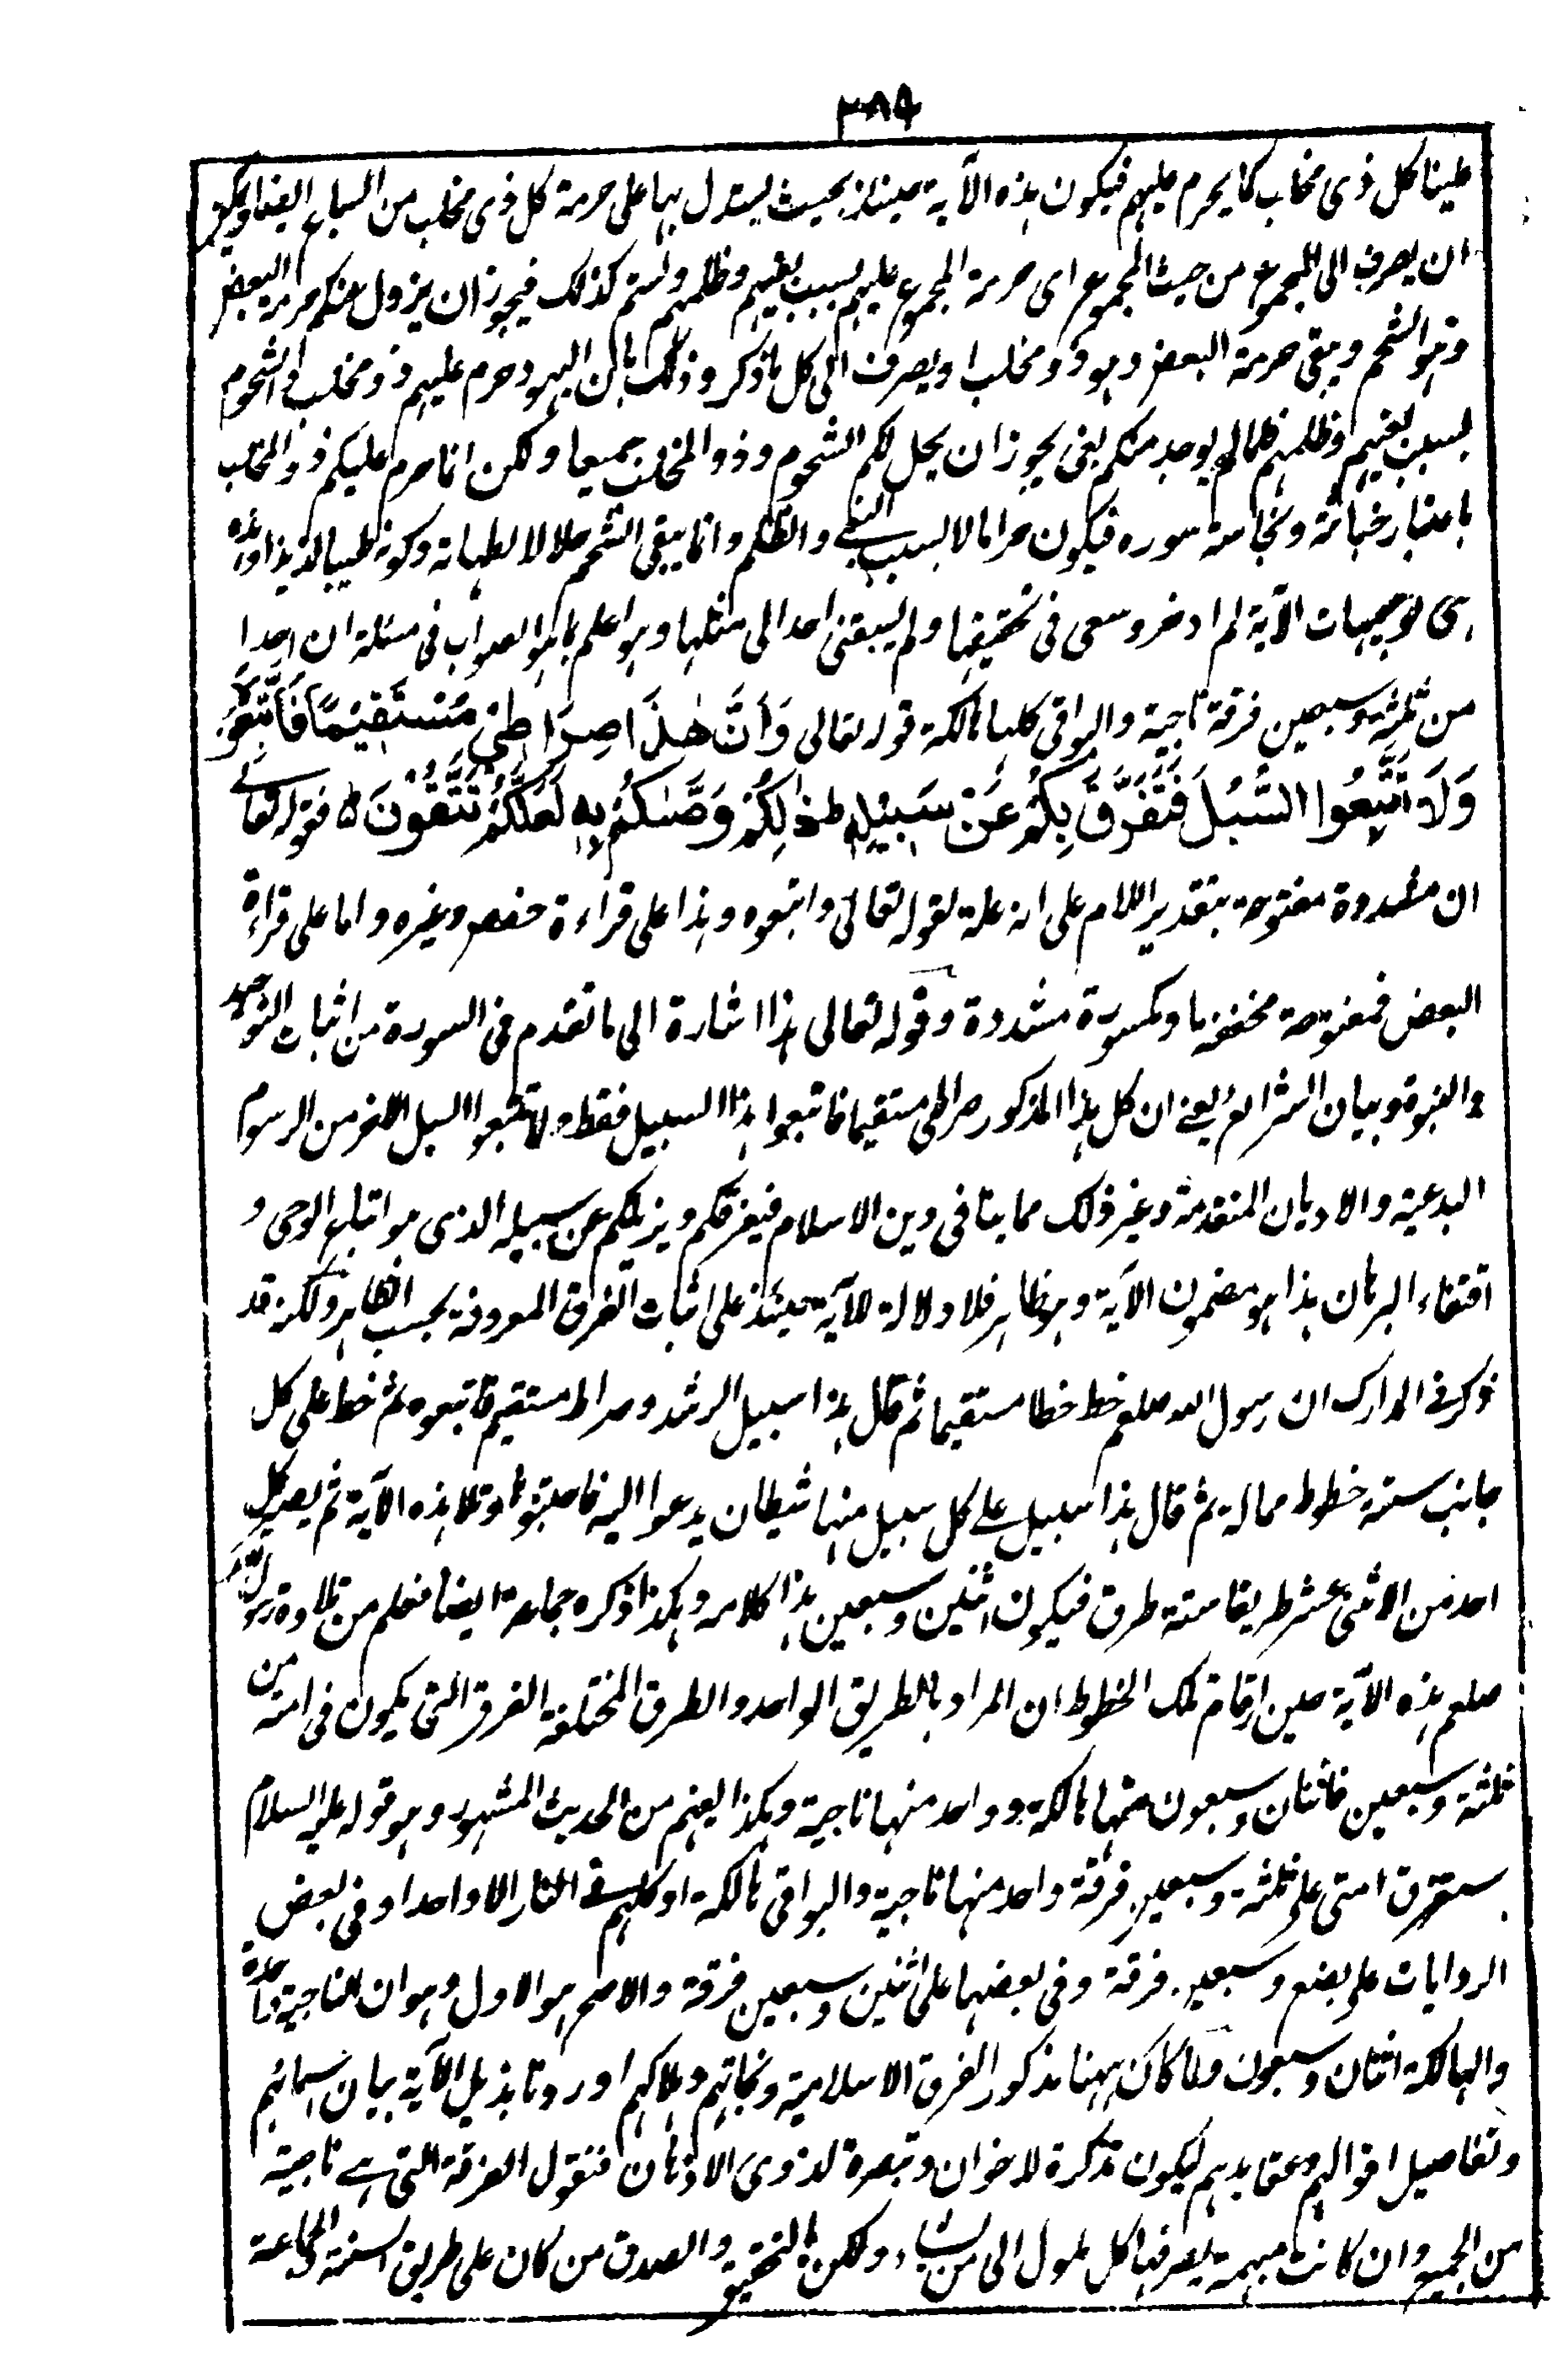 ٣٨٥
علينا كل ذى مخلب كما يحرم عليهم فيكون هذه الآية حينئذ بحيث يستدل بها على حرمة كل ذى مخلب من السباع ايضا ويمكن
ان يصرف الى المجموع من حيث المجموع اى حرمة المجموع عليهم بسبب بغيهم وظلمهم ولستم كذلك فيجوز ان يزول عنكم حرمة البعض
وهو الشحم ويبقى حرمة البعض وهو ذو مخلب او يصرف الى كل ما ذكر وذلك بان اليهود حرم عليهم ذو مخلب والشحوم
بسبب بغيهم وظلمهم فلما لم يوجد منكم بغى يجوز ان يحل لكم الشحوم وذو المخلب جميعا ولكن انما حرم عليكم ذو المخلب
باعتبار خباثته ونجاسة سوره فيكون حراما لا بسبب البغى والظلم وانما يبقى الشحم حلالا لطهارته وكونه طيبا لذيذا وهذه
هى توجيهات الآية لم ادخر وسعى فى تحقيقها ولم يسبقنى احد الى مثلها وهو اعلم بما هو الصواب فى مسئلة ان احدا
من ثلثة وسبعين فرقة ناجية والبواقى كلها هالكة قوله تعالى وَاَنَّ هٰذَا صِرَاطِىْ مُسْتَقِيْمًا فَاتَّبِعُوْهُ
وَلَا تَتَّبِعُوا السُّبُلَ فَتَفَرَّقَ بِكُمْ عَنْ سَبِيْلِهٖ ط ذٰلِكُمْ وَصّٰىكُمْ بِهٖ لَعَلَّكُمْ تَتَّقُوْنَ ۵ فقوله تعالى
ان مشددة مفتوحة بتقدير اللام على انه علة لقوله تعالى واتبعوه وهذا على قراءة حفص وغيره واما على قراءة
البعض فمفتوحة مخففة او مكسورة مشددة وقوله تعالى هذا اشارة الى ما تقدم فى السورة من اثبات التوحيد
والنبوة وبيان الشرائع يعنى ان كل هذا المذكور صراطى مستقيما فاتبعوا هذا السبيل فقط ولا تتبعوا السبل الاخر من الرسوم
البدعية والاديان المتقدمة وغير ذلك مما ينافى دين الاسلام فيفرقكم ويزيلكم عن سبيله الذى هو اتباع الوحى و
اقتفاء البرهان هذا هو مضمون الآية وهو ظاهر فلا دلالة للآية حينئذ على اثبات الفرق المعروفة بحسب الظاهر ولكنه قد
ذكر فى المدارك ان رسول الله صلعم خط خطا مستقيما ثم قال هذا سبيل الرشد وصراط مستقيم فاتبعوه ثم خط على كل
جانب ستة خطوط ممالة ثم قال هذا سبيل على كل سبيل منها شيطان يدعوا اليه فاجتنبوها وتلا هذه الآية ثم يصير كل
احد من الاثنى عشر طريقا ستة طرق فيكون اثنين وسبعين هذا كلامه وهكذا ذكره جماعة ايضا فعلم من تلاوة رسول الله
صلعم هذه الآية حين ارقام تلك الخطوط ان المراد بالطريق الواحد والطرق المختلفة الفرق التى يكون فى امته من
ثلثة وسبعين فاثنان وسبعون منها هالكة وواحد منها ناجية وهكذا يفهم من الحديث المشهور وهو قوله عليه السلام
ستفترق امتى على ثلثة وسبعين فرقة واحد منها ناجية والبواقى هالكة او كلهم فى النار الا واحدا وفى بعض
الروايات على بضع وسبعين فرقة وفى بعضها على اثنين وسبعين فرقة والاصح هو الاول وهو ان الناجية واحدة
والهالكة اثنان وسبعون ولما كان ههنا مذكور الفرق الاسلامية ونجاتهم وهلاكهم اوردنا بذيل الآية بيان اسمائهم
وتفاصيل اقوالهم وعقايدهم ليكون تذكرة لاخوان وتبصرة لذوى الاذهان فنقول الفرقة التى هى ناجية
من الجميع وان كانت مبهمة يصرفها كل ملول الى من يشاء ولكن التحقيق والصدق من كان على طريق السنة والجماعة